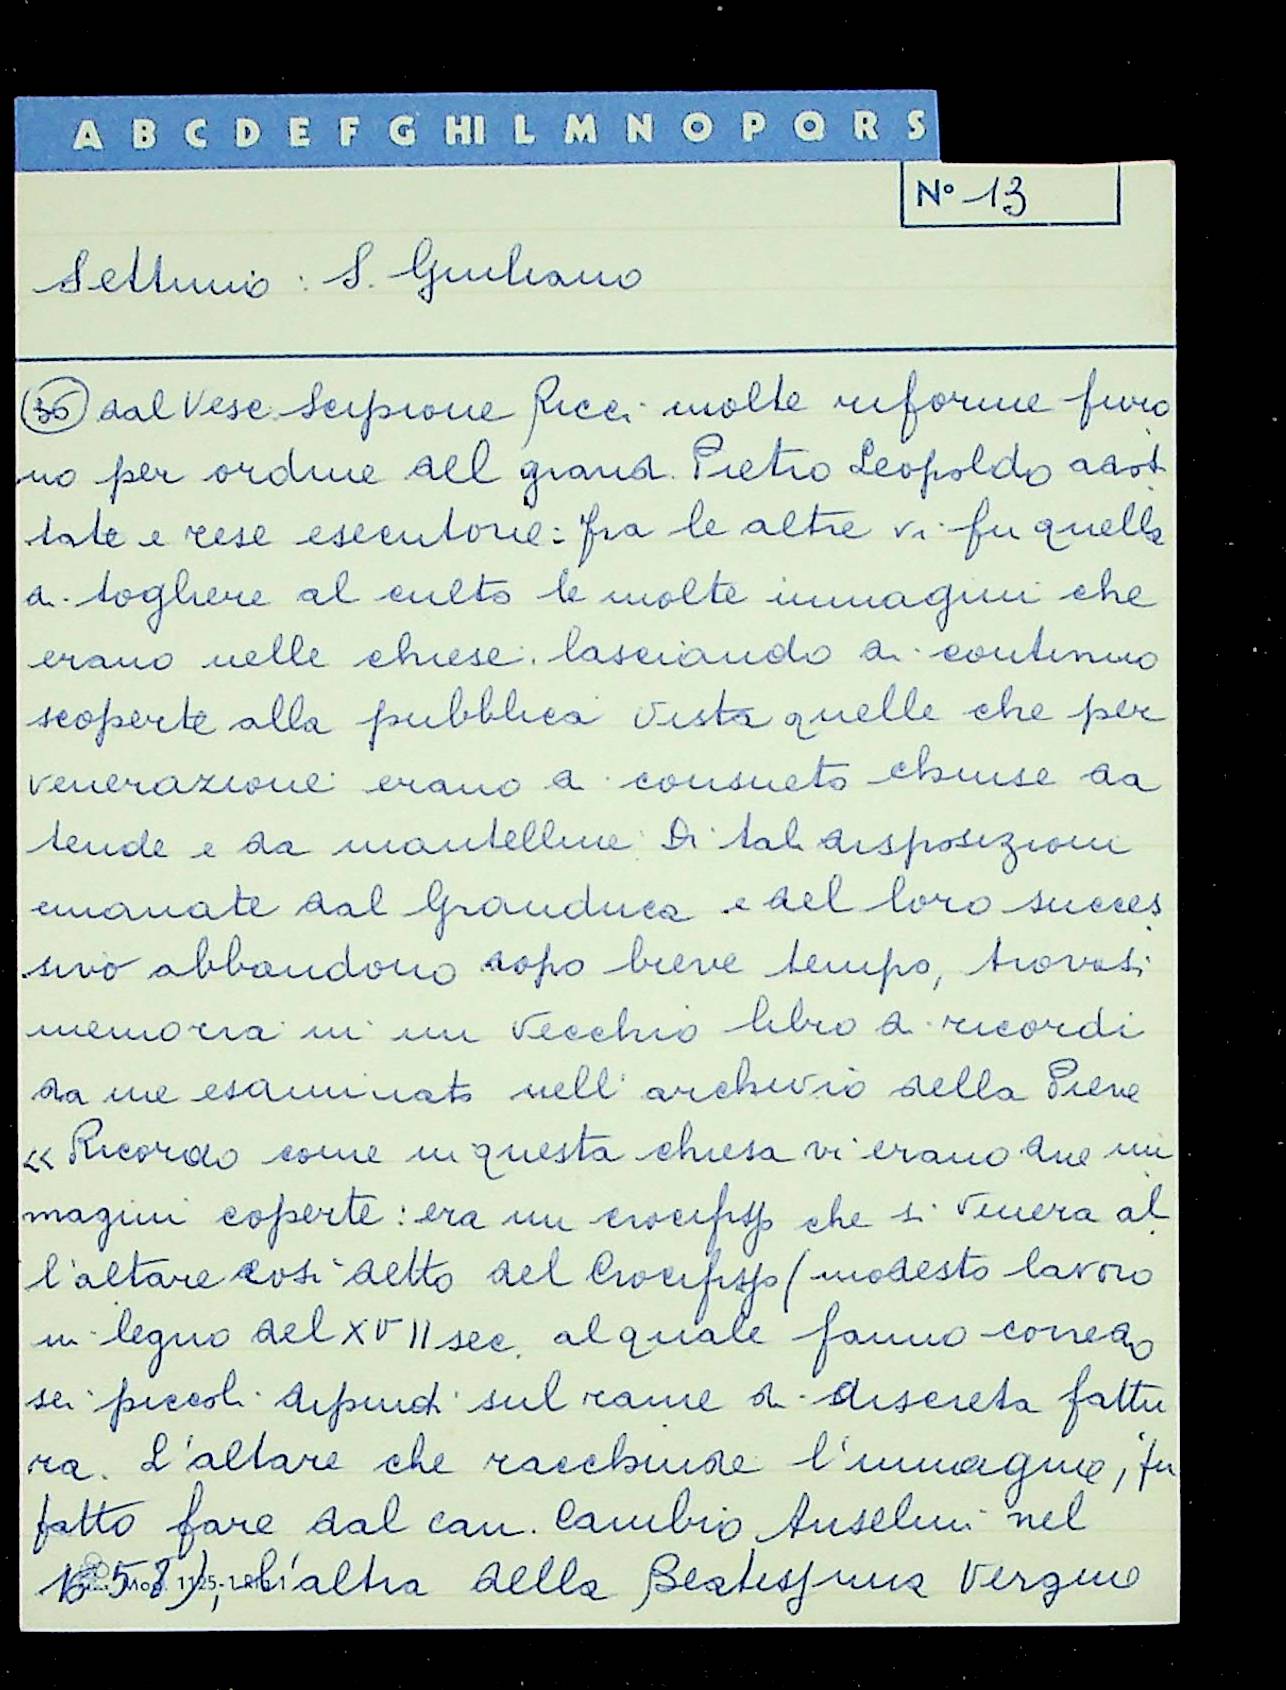 A B C D E F G HI L M N O P Q R S
Nº 13
Settimio : S. Giuliano
(36) dal Vesc. Scipione Ricci molte riforme furo
no per ordine del grand. Pietro Leopoldo adot
tate e rese esecutorie: fra le altre vi fu quella
di togliere al culto le molte immagini che
erano nelle chiese. lasciando di continuo
scoperte alla pubblica vista quelle che per
venerazione erano di consueto chiuse da
tende e da mantelline. Di tali disposizioni
emanate dal Granduca e del loro succes
sivo abbandono dopo breve tempo, trovasi
memoria in un vecchio libro di ricordi
da me esaminato nell'archivio della Pieve
« Ricordo come in questa chiesa vi erano due im
magini coperte: era un crocifisso che si venera al
l'altare così detto del Crocifisso (modesto lavoro
in legno del XVII sec. al quale fanno corredo
sei piccoli dipinti sul rame di discreta fattu
ra. L'altare che racchiude l'immagine, fu
fatto fare dal can. Cambio Anselmi nel
1658), l'altra della Beatissima Vergine